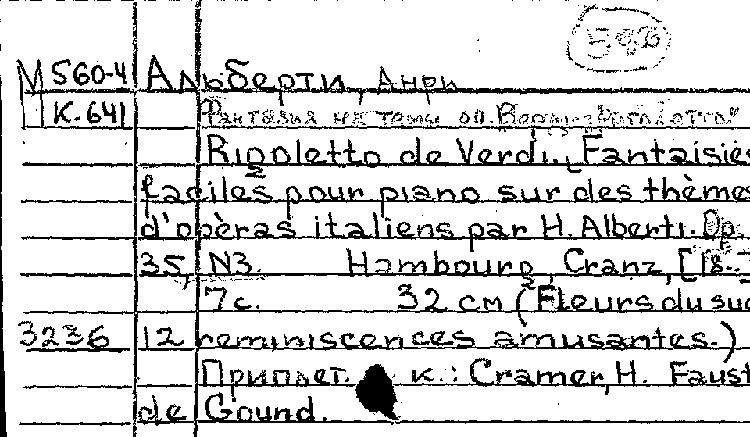 586
М 560-4 Альберти, Анри
К. 641 Фантазия на темы оп. Верди "Риголетто"
Rigoletto de Verdi. Fantaisies
faciles pour piano sur des thème
d'opèras italiens par H. Alberti. Op.
35, N3. Hambourg, Cranz, [18..]
7с. 32 см (Fleurs du sud
3236 12 reminiscences amusantes.)
Приплет. к.: Cramer, H. Faust
de Gound.